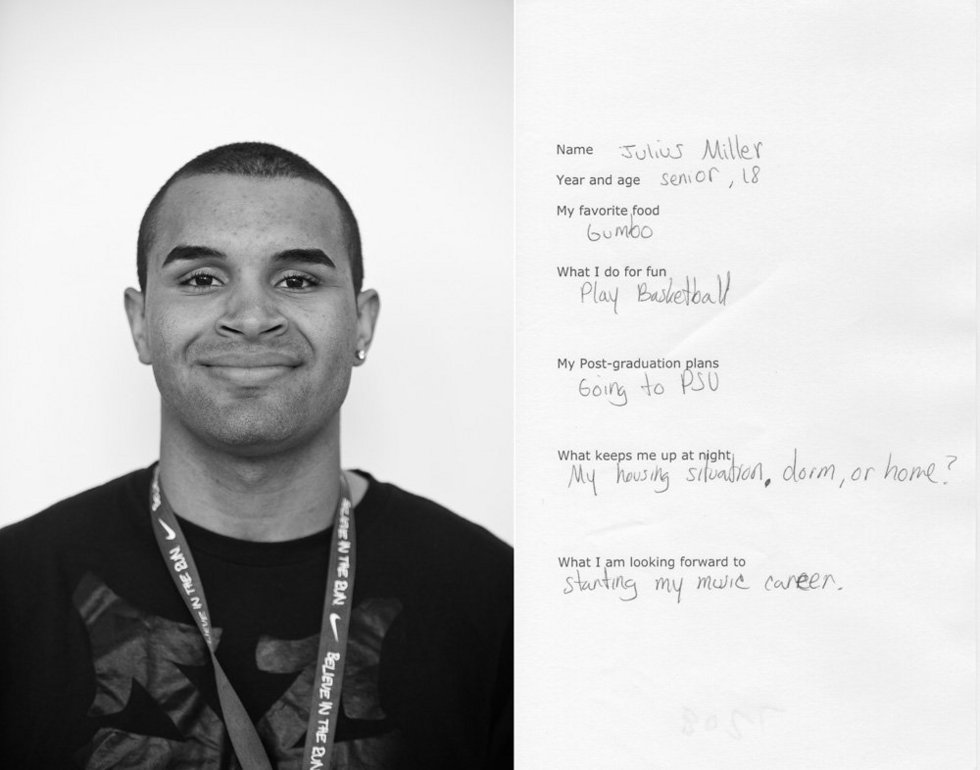 BELIEVE IN THE RUN
BELIEVE IN THE RUN
BELIEVE IN THE RUN
Name Julius Miller
Year and age senior, 18
My favorite food
Gumbo
What I do for fun
Play Basketball
My Post-graduation plans
Going to PSU
What keeps me up at night
My housing situation, dorm, or home?
What I am looking forward to
starting my music career.